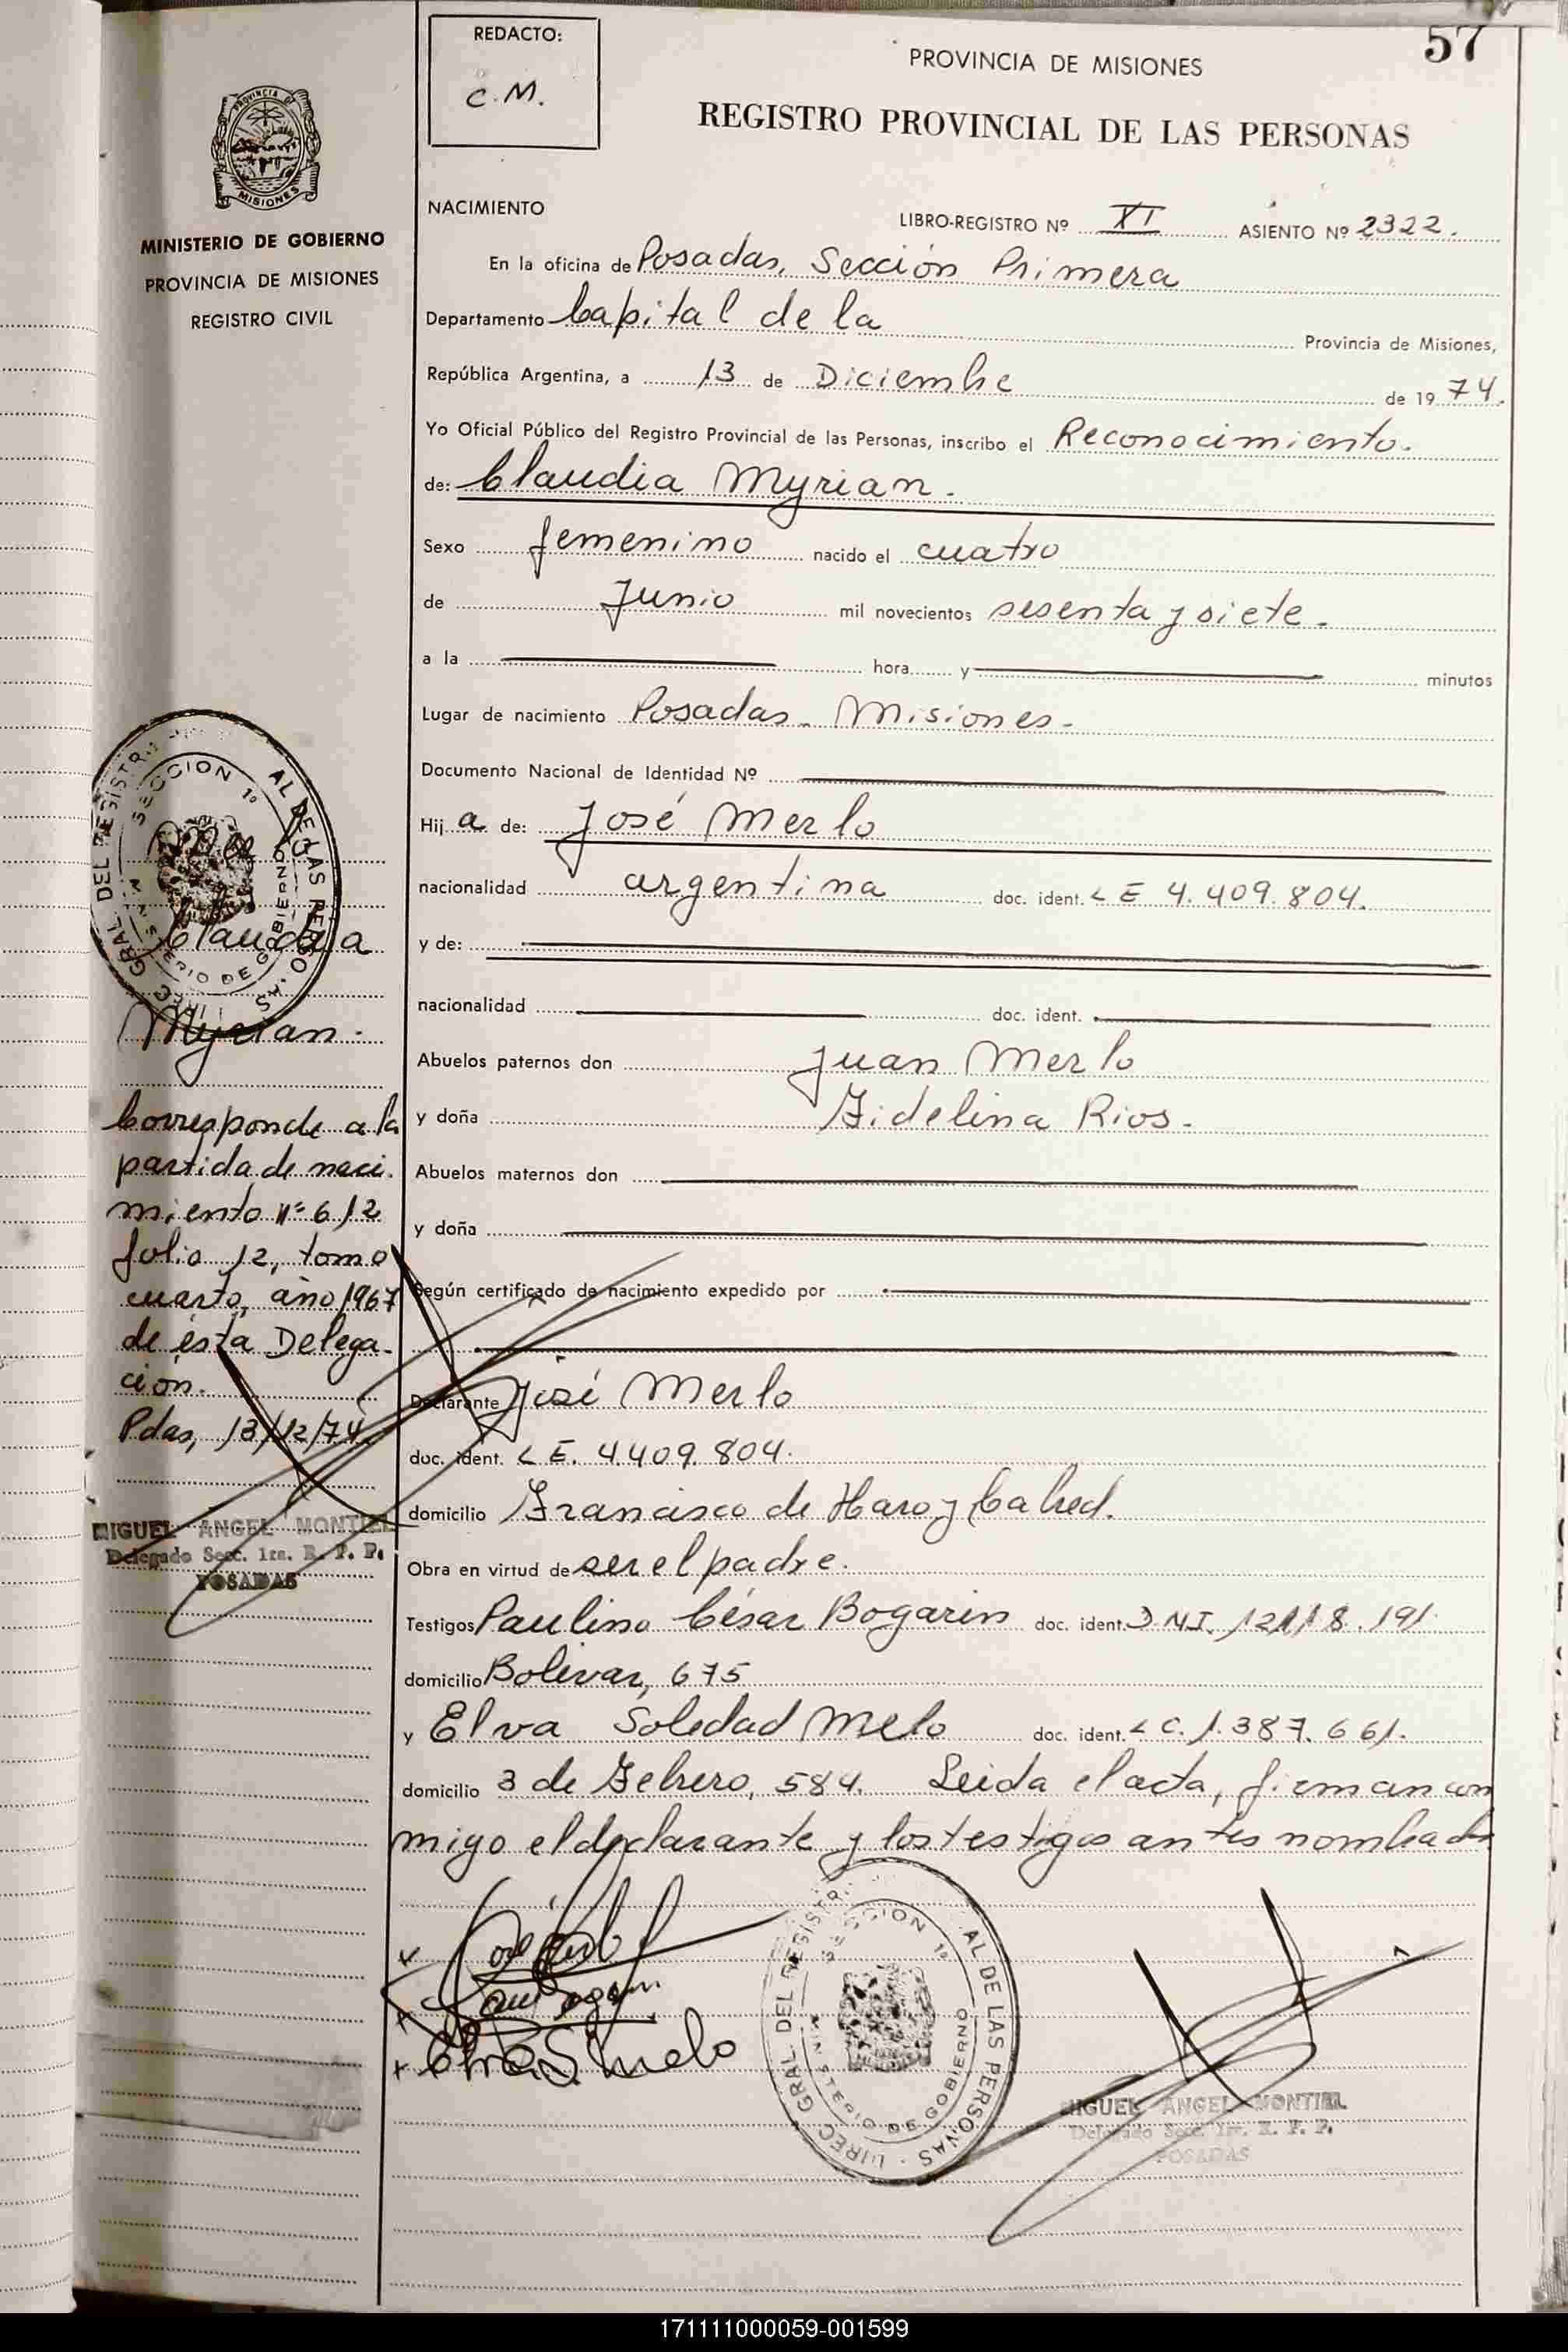 57
REDACTO:
C.M.
PROVINCIA DE MISIONES
REGISTRO PROVINCIAL DE LAS PERSONAS
PROVINCIA DE
MISIONES
MINISTERIO DE GOBIERNO
PROVINCIA DE MISIONES
REGISTRO CIVIL
NACIMIENTO
LIBRO-REGISTRO Nº XI ASIENTO Nº 2322.
En la oficina de Posadas, Sección Primera
Departamento Capital de la Provincia de Misiones,
República Argentina, a 13 de Diciembre de 19 74.
Yo Oficial Público del Registro Provincial de las Personas, inscribo el Reconocimiento.
de: Claudia Myrian.
Sexo femenino nacido el cuatro
de Junio mil novecientos sesenta y siete.
a la hora y minutos
Lugar de nacimiento Posadas - Misiones -
Documento Nacional de Identidad Nº
Hij a de: José Merlo
nacionalidad argentina doc. ident. L E 4.409.804.
y de:
nacionalidad doc. ident.
Abuelos paternos don Juan Merlo
y doña Fidelina Rios.
Abuelos maternos don
y doña
Según certificado de nacimiento expedido por
Declarante José Merlo
doc. ident. L E. 4.409.804.
domicilio Francisco de Haro y Cabred.
Obra en virtud de ser el padre.
Testigos Paulino César Bogarin doc. ident. D.N.I. 12.118.191
domicilio Bolivar, 675
y Elva Soledad Melo doc. ident. L C. 1.387.661.
domicilio 3 de Febrero, 584. Leida el acta, firman con
migo el declarante y los testigos antes nombrados
Merlo
Claudia
Myrian.
Corresponde a la
partida de naci-
miento Nº 612
folio 12, tomo
cuarto, año 1967
de ésta Delega-
ción.
Pdas, 13/12/74.
MIGUEL ANGEL MONTIEL
Delegado Secc. 1ra. R. P. P.
POSADAS
SECCION 1º
GRAL DEL REGISTR AL DE LAS PERSONAS
MINISTERIO DE GOBIERNO
Elva S Melo
DIREC GRAL DEL REGISTR AL DE LAS PERSONAS
SECCION 1º
MINISTERIO DE GOBIERNO
MIGUEL ANGEL MONTIEL
Delegado Secc. 1ra. R. P. P.
POSADAS
171111000059-001599